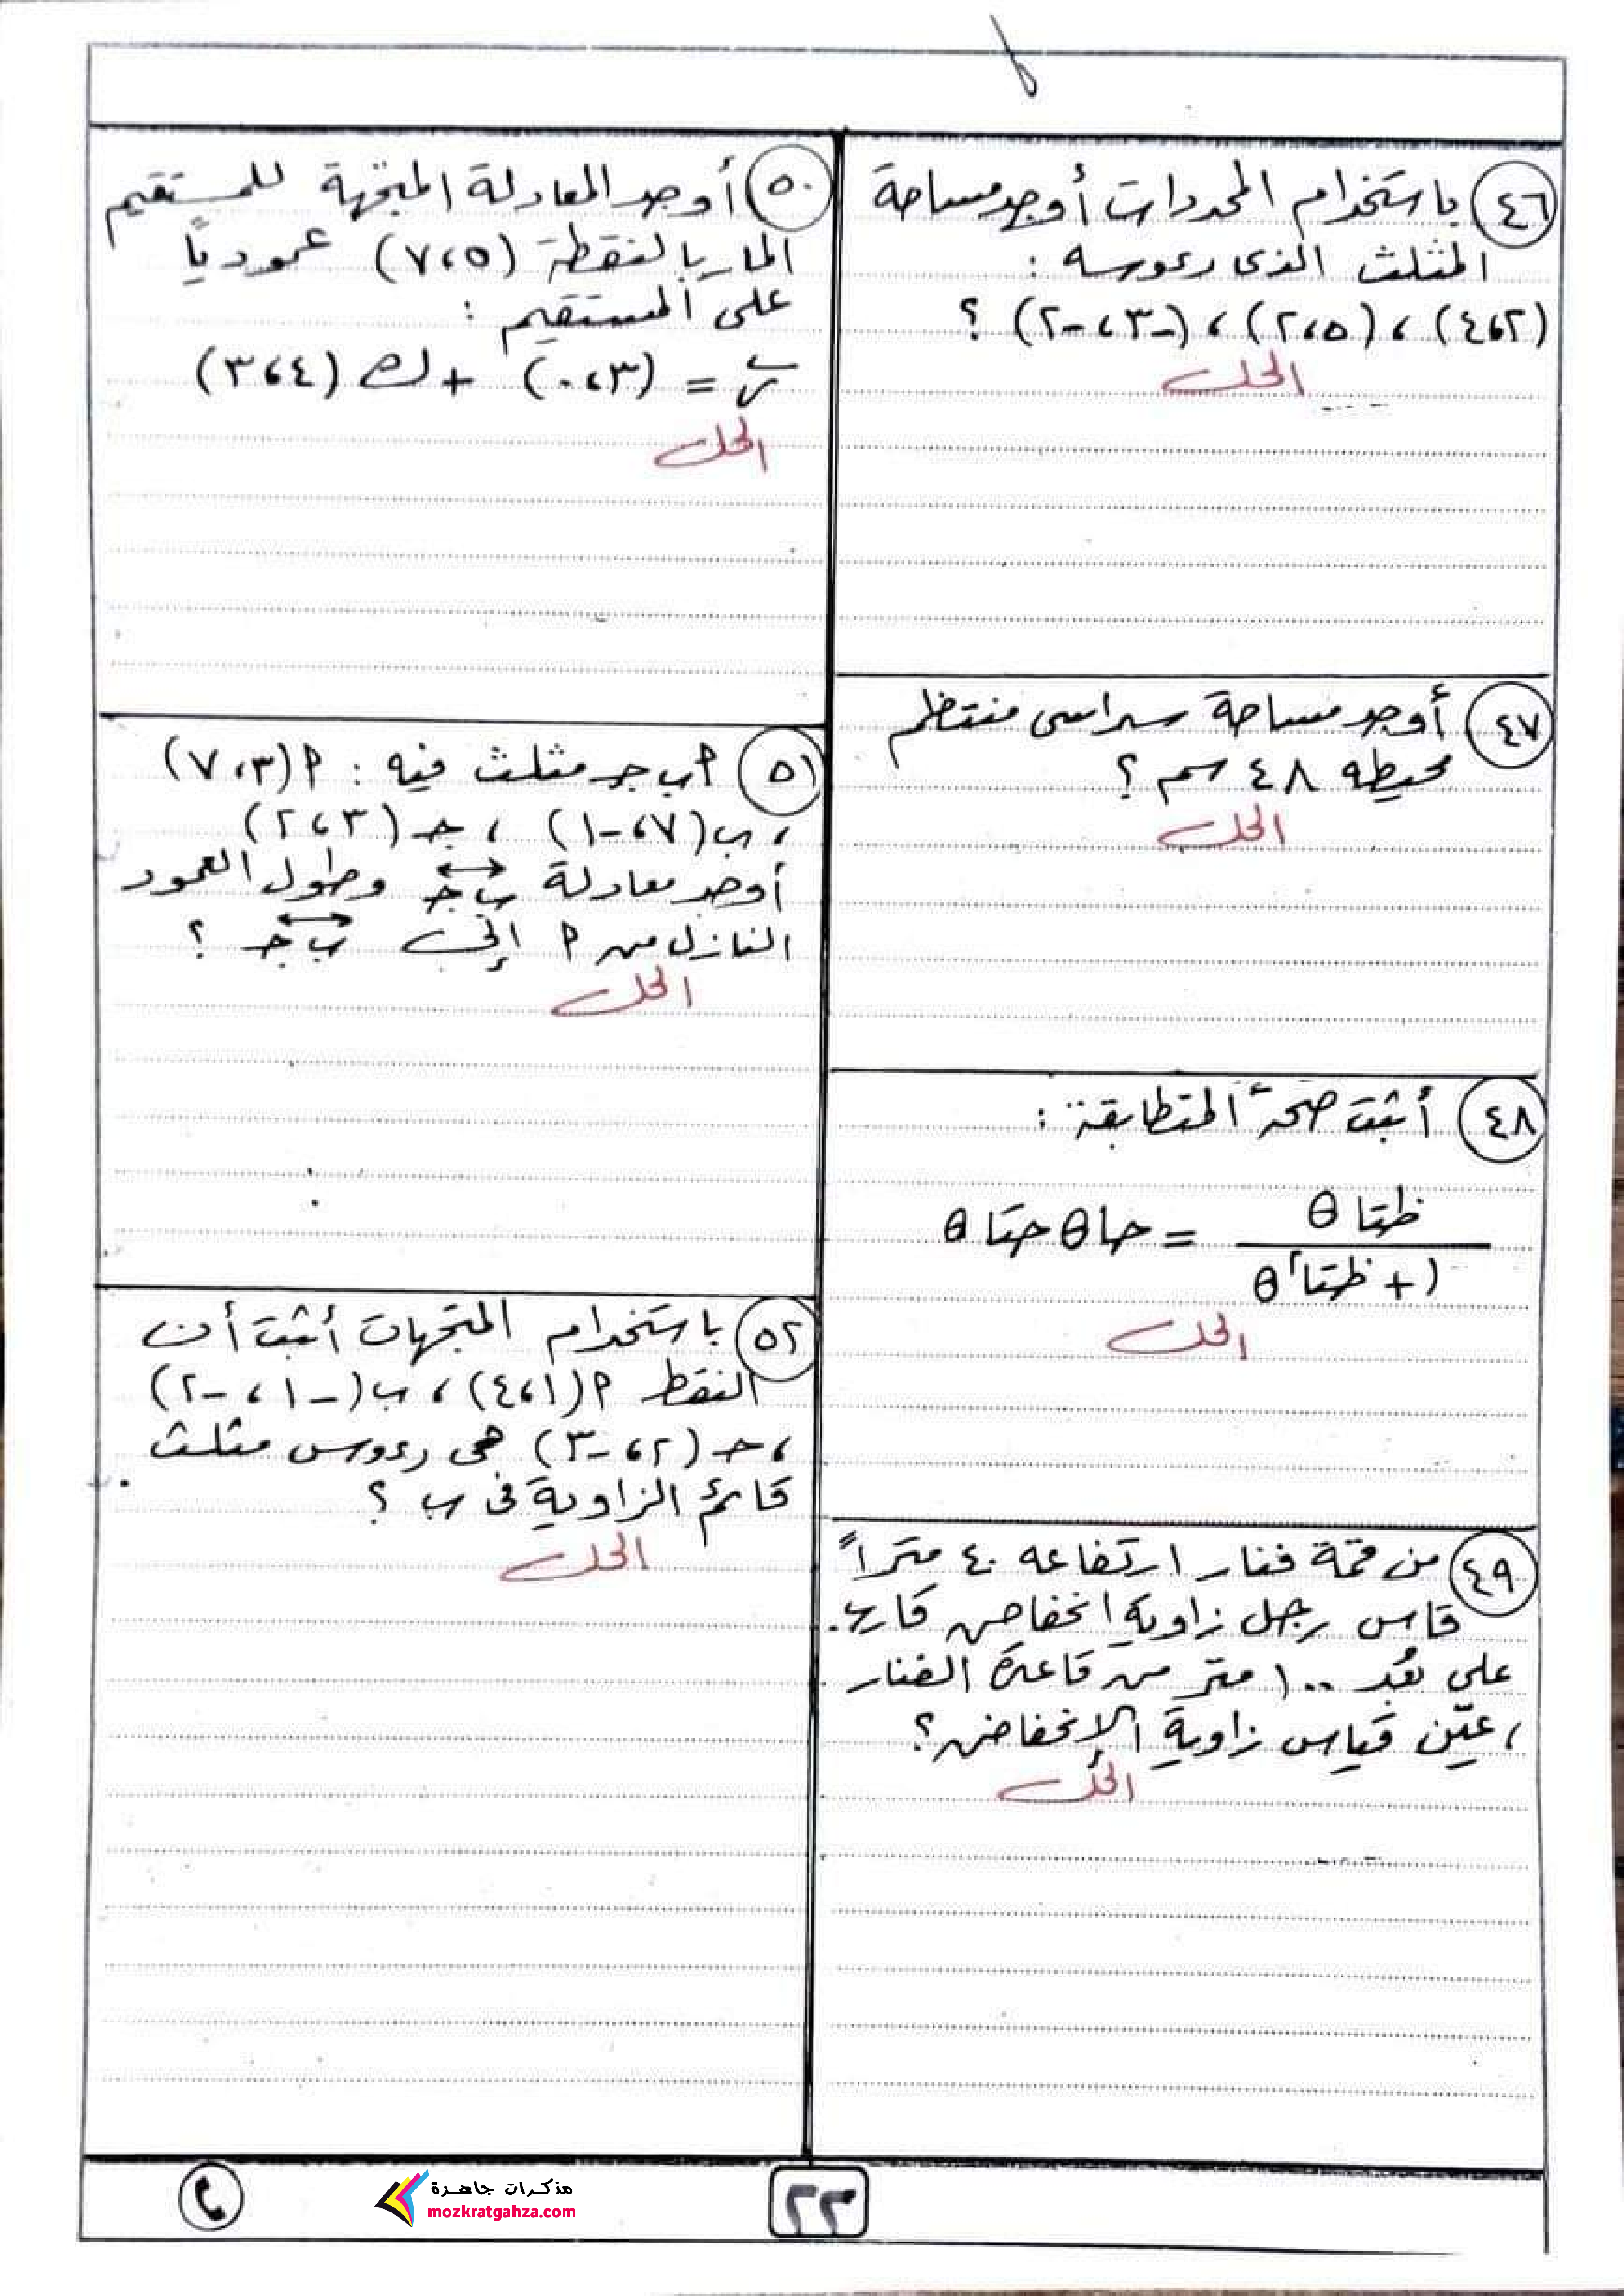 ٤٦ باستخدام المحددات أوجد مساحة
المثلث الذى رءوسه :
(٤،٢) ، (٢،٥) ، (-٣، -٢) ؟
الحل
٤٧ أوجد مساحة سداسى منتظم
محيطه ٤٨ سم ؟
الحل
٤٨ أثبت صحة المتطابقة :
ظتا θ
ــــــــــ = حا θ حتا θ
١ + ظتا² θ
الحل
٤٩ من قمة فنار ارتفاعه ٤٠ متراً
قاس رجل زاوية انخفاض قارب
على بُعد ١٠٠ متر من قاعدة الفنار
، عيّن قياس زاوية الإنخفاض ؟
الحل
٥٠ أوجد المعادلة المتجهة للمستقيم
المار بالنقطة (٧،٥) عمودياً
على المستقيم :
ر = (٠،٣) + ك (٣،٤)
الحل
٥١ ٩ ب جـ مثلث فيه : ٩ (٧،٣)
، ب (٧، -١) ، جـ (٢،٣)
أوجد معادلة ب جـ وطول العمود
النازل من ٩ إلى ب جـ ؟
الحل
٥٢ باستخدام المتجهات أثبت أن
النقط ٩ (٤،١) ، ب (-١، -٢)
، جـ (٢، -٣) هى رءوس مثلث
قائم الزاوية فى ب ؟
الحل
مذكرات جاهزة
mozkratgahza.com
٢٣